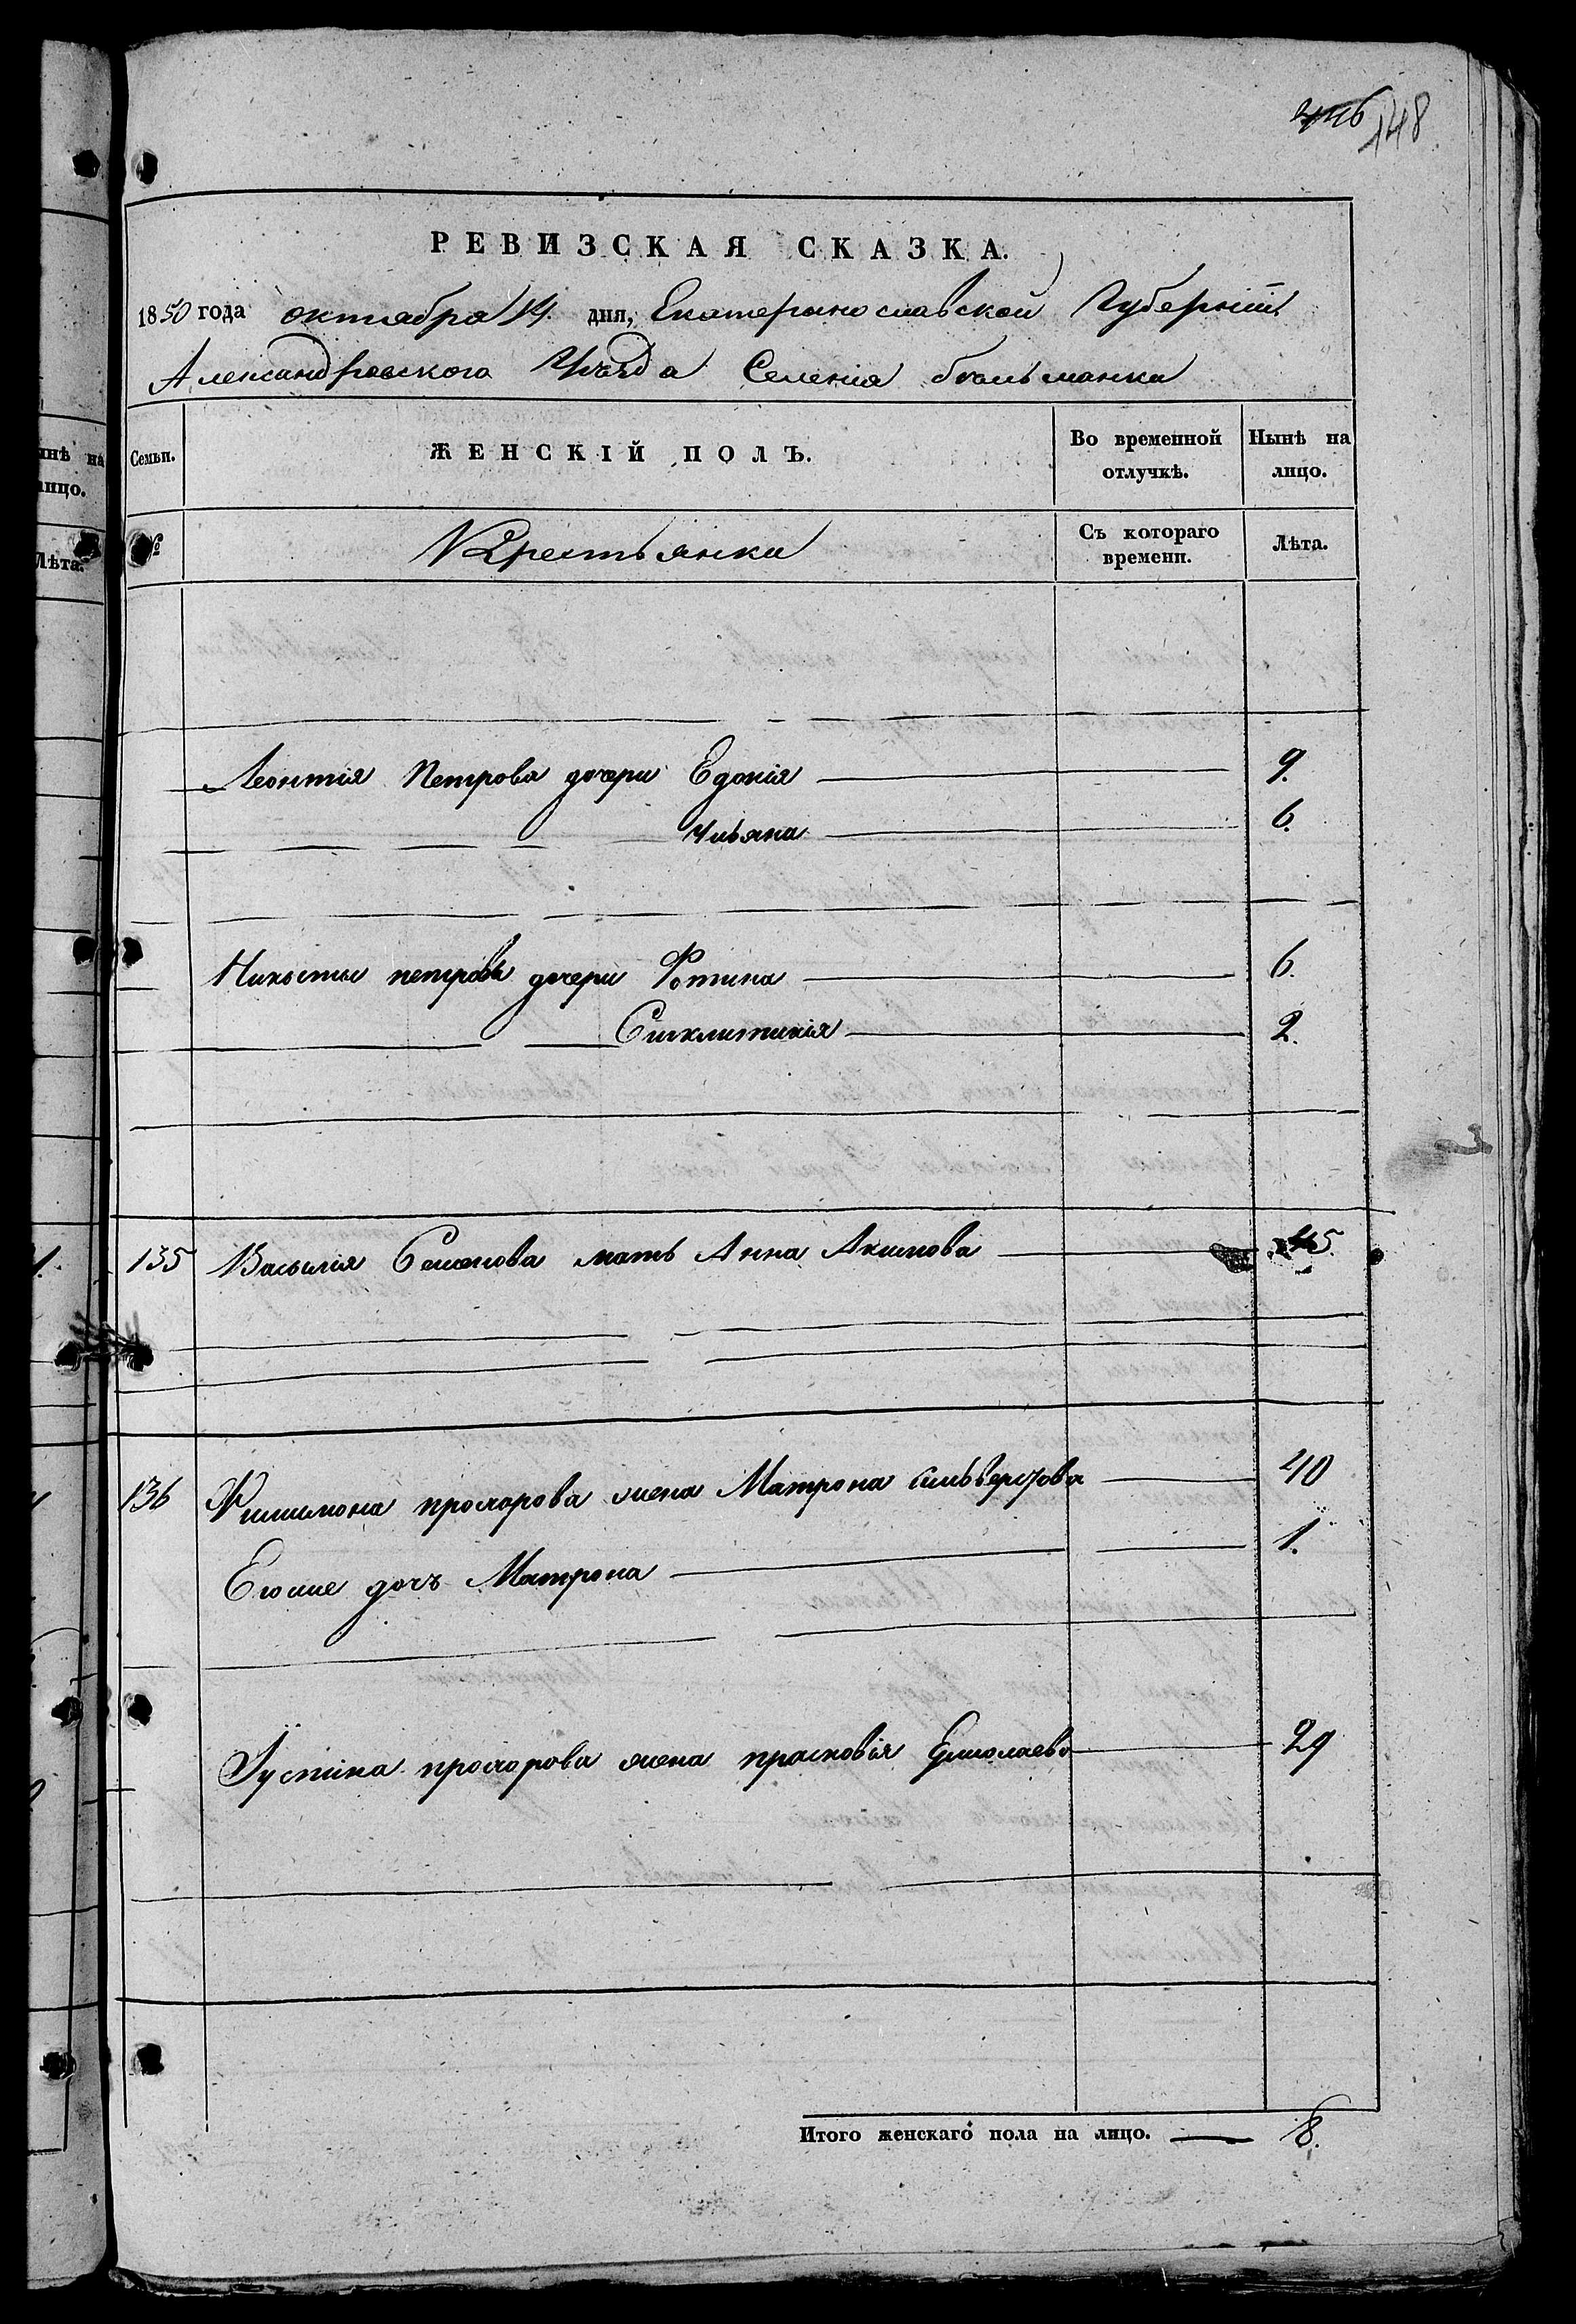 148
РЕВИЗСКАЯ СКАЗКА.
1850 года октября 14. дня, Екатеринославской Губерніи
Александровского Уѣзда Селенія
Семьи. ЖЕНСКІЙ ПОЛЪ. Во временной отлучкѣ. Нынѣ на лицо.
№ Крестьянки Съ котораго времени. Лѣта.
Леонтія Петрова дочери Едокія 9.
Ульяна 6.
Никиты петрова дочери Фотина 6.
Сигклитикія 2.
135 Василія Семенова мать Анна Акимова 45.
136 Филимона прохорова жена Матрона сильверстова 40
Егоже дочъ Матрона 1.
Іустина прохорова жена прасковія Ермолаева 29
Итого женскаго пола на лицо. 8.
нѣ на
лицо.
Лѣта.